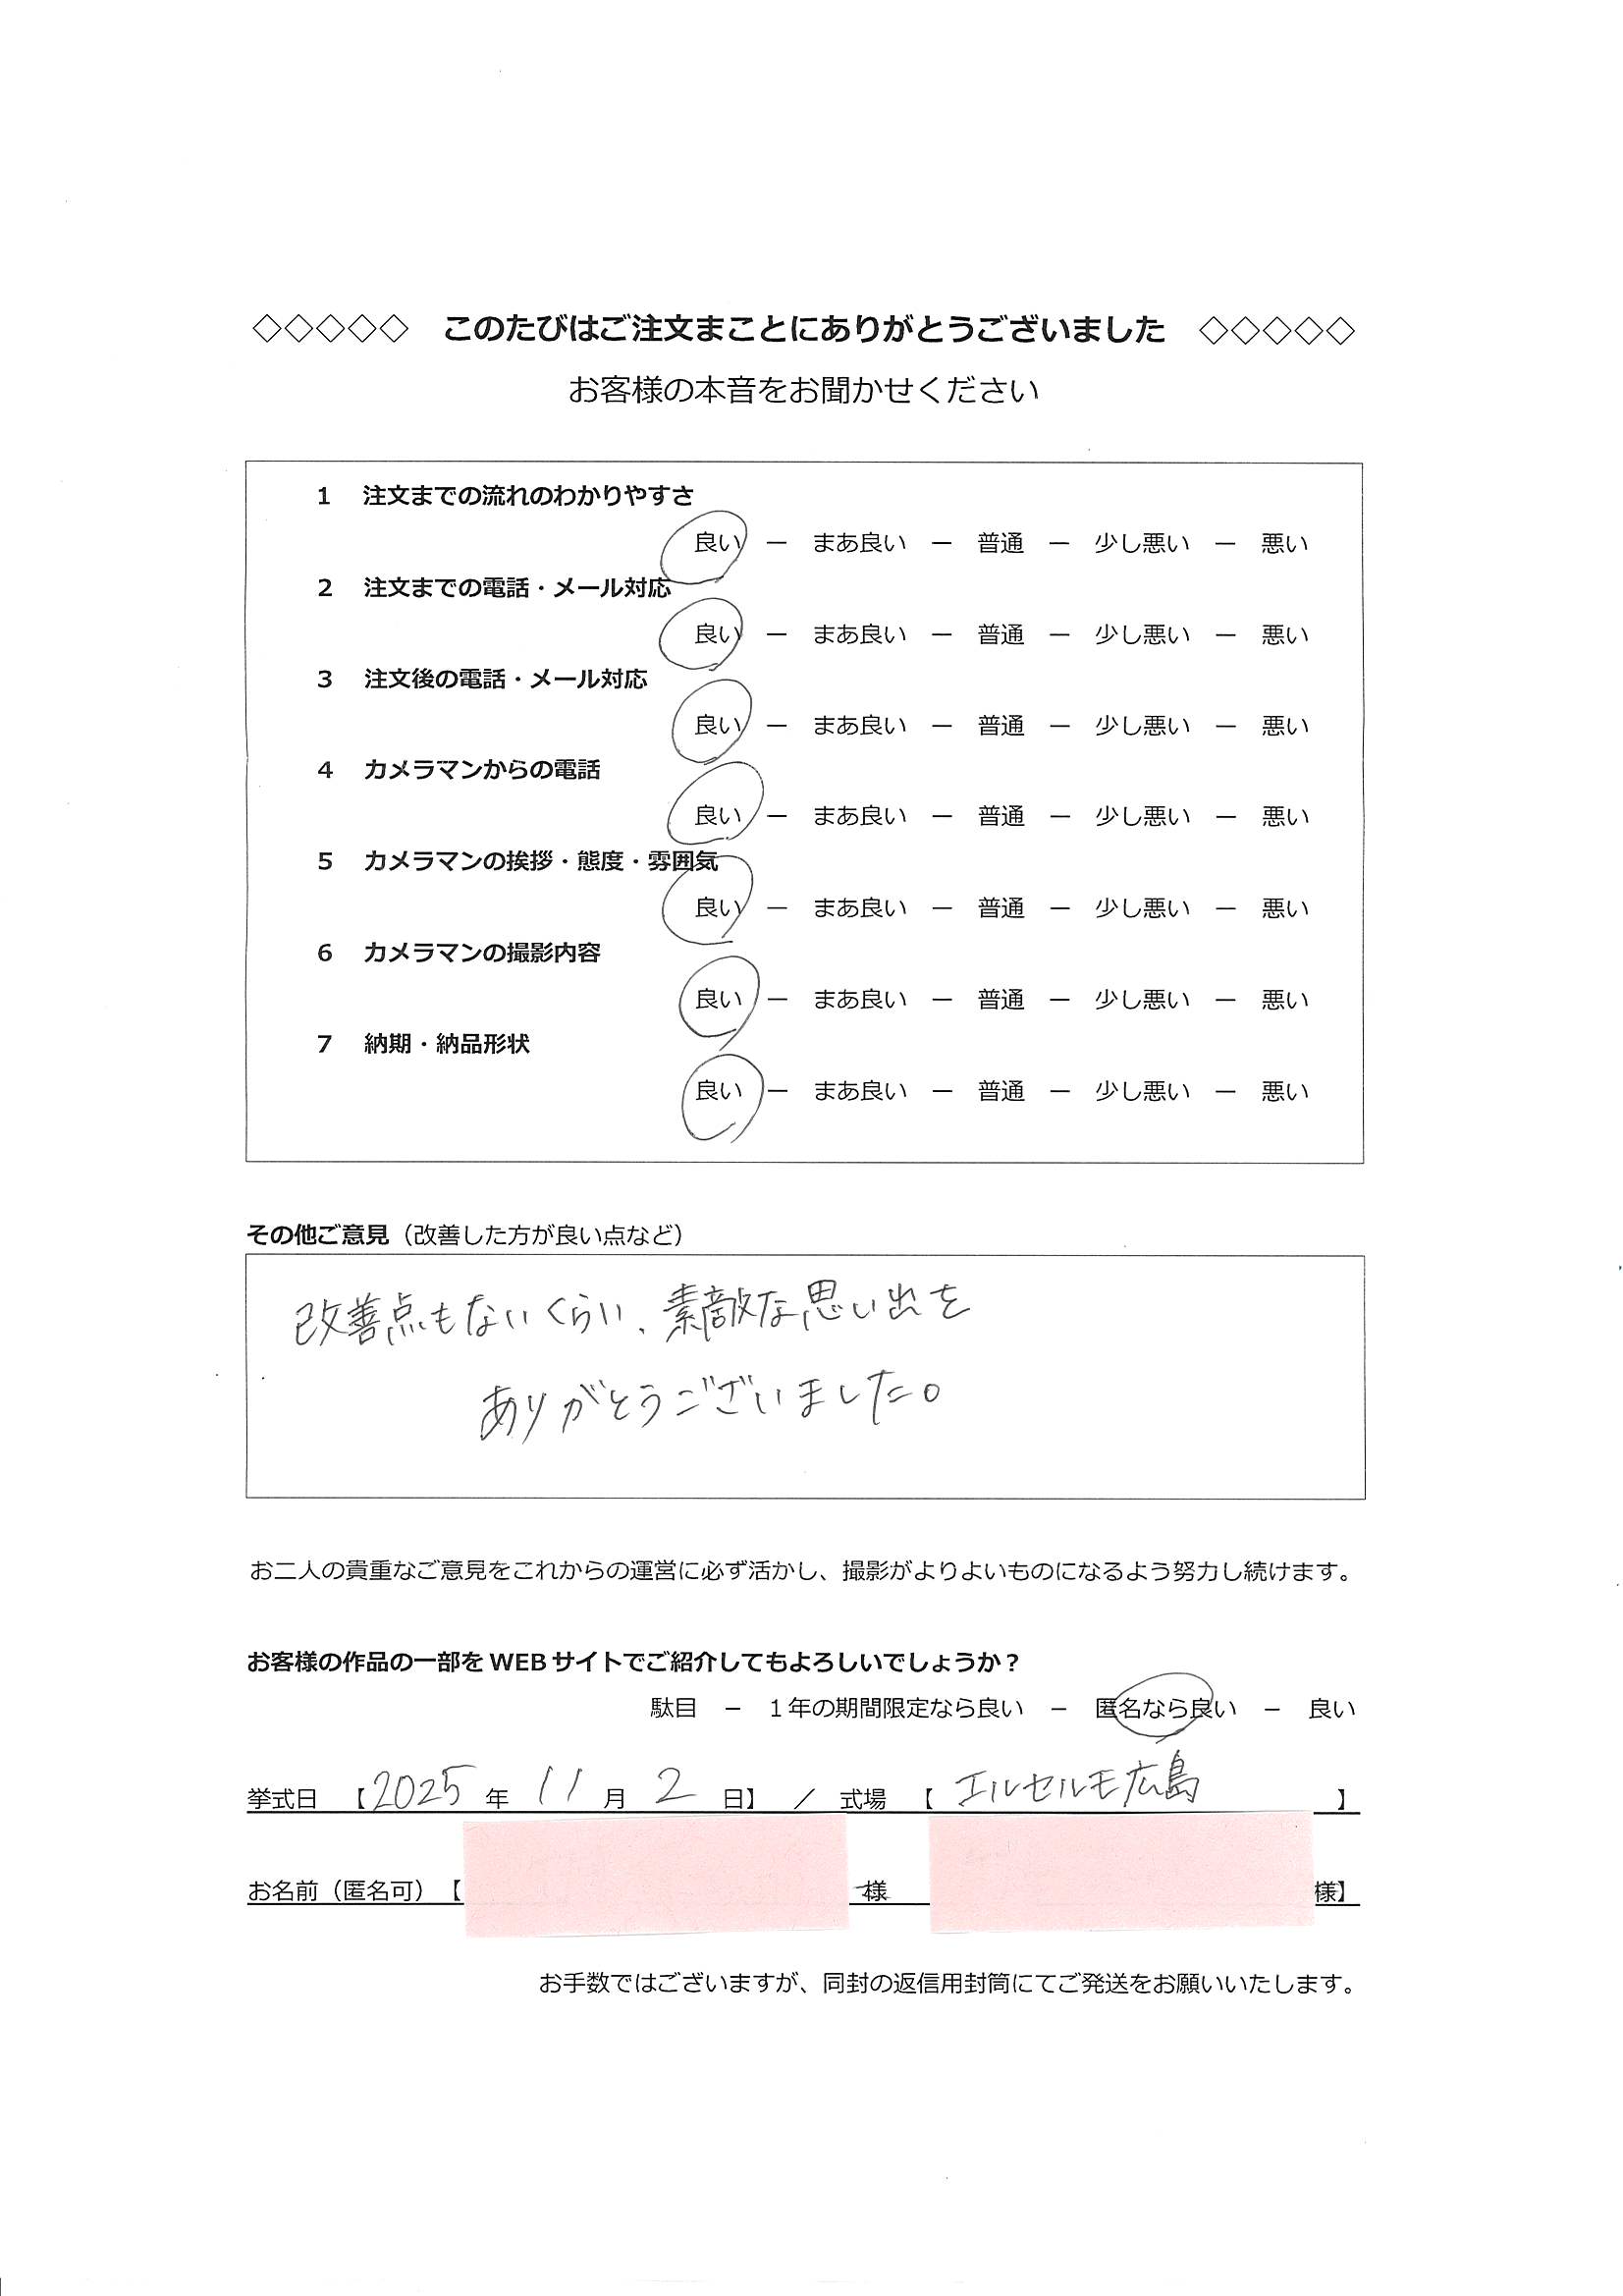 ◇◇◇◇◇ このたびはご注文まことにありがとうございました ◇◇◇◇◇
お客様の本音をお聞かせください
1 注文までの流れのわかりやすさ
良い － まあ良い － 普通 － 少し悪い － 悪い
2 注文までの電話・メール対応
良い － まあ良い － 普通 － 少し悪い － 悪い
3 注文後の電話・メール対応
良い － まあ良い － 普通 － 少し悪い － 悪い
4 カメラマンからの電話
良い － まあ良い － 普通 － 少し悪い － 悪い
5 カメラマンの挨拶・態度・雰囲気
良い － まあ良い － 普通 － 少し悪い － 悪い
6 カメラマンの撮影内容
良い － まあ良い － 普通 － 少し悪い － 悪い
7 納期・納品形状
良い － まあ良い － 普通 － 少し悪い － 悪い
その他ご意見（改善した方が良い点など）
改善点もないくらい、素敵な思い出を
ありがとうございました。
お二人の貴重なご意見をこれからの運営に必ず活かし、撮影がよりよいものになるよう努力し続けます。
お客様の作品の一部をWEBサイトでご紹介してもよろしいでしょうか？
駄目 － 1年の期間限定なら良い － 匿名なら良い － 良い
挙式日 【2025年 11月 2日】 ／ 式場 【 エルセルモ広島 】
お名前（匿名可）【 様 様】
お手数ではございますが、同封の返信用封筒にてご発送をお願いいたします。